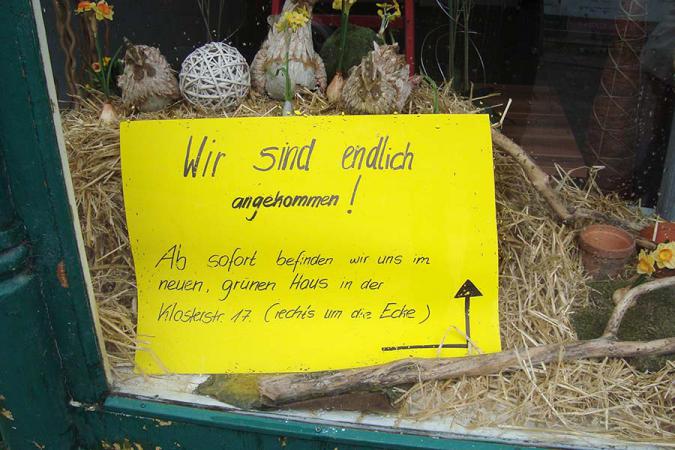 Wir sind endlich
angekommen!
Ab sofort befinden wir uns im
neuen, grünen Haus in der
Klosterstr. 17. (rechts um die Ecke)